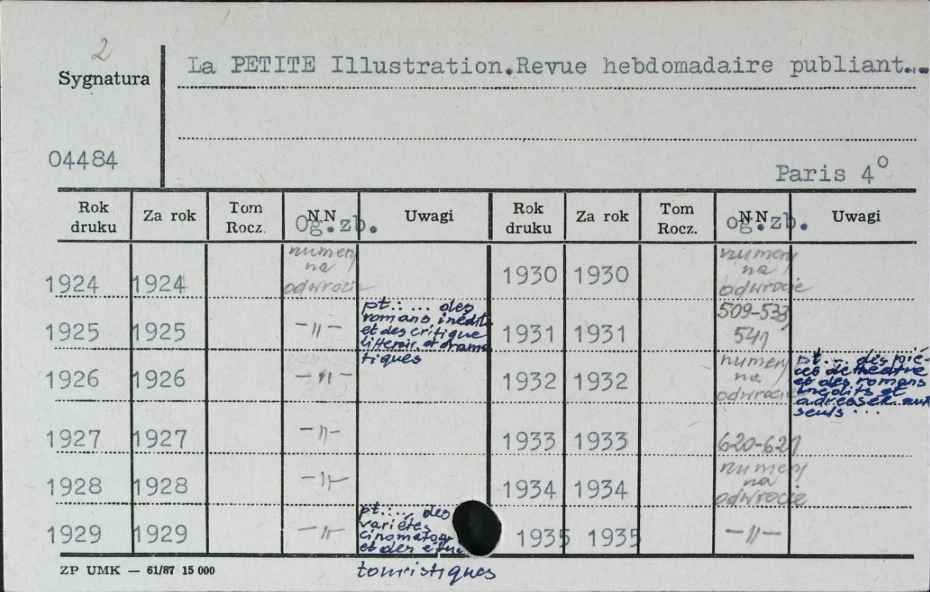 2
Sygnatura
La PETITE Illustration.Revue hebdomadaire publiant...
04484
Paris 4°
Rok druku Za rok Tom Rocz. N.N Og.zb. Uwagi Rok druku Za rok Tom Rocz. N.N og.zb. Uwagi
1924 1924 numery na odwrocie 1930 1930 numery na odwrocie
1925 1925 -"- pt.: ... des romans inédits et des critique litterair. et drama tiques 1931 1931 509-533 541
1926 1926 -"- 1932 1932 numery na odwrocie pt.: ... des piè- ces de théatre et des romans inédits et adresser aux seuls ...
1927 1927 -"- 1933 1933 620-621
1928 1928 -"- 1934 1934 numery na odwrocie
1929 1929 -"- pt.: ... des variétes cinomatog et des touristiques 1935 1935 -"-
ZP UMK — 61/87 15 000